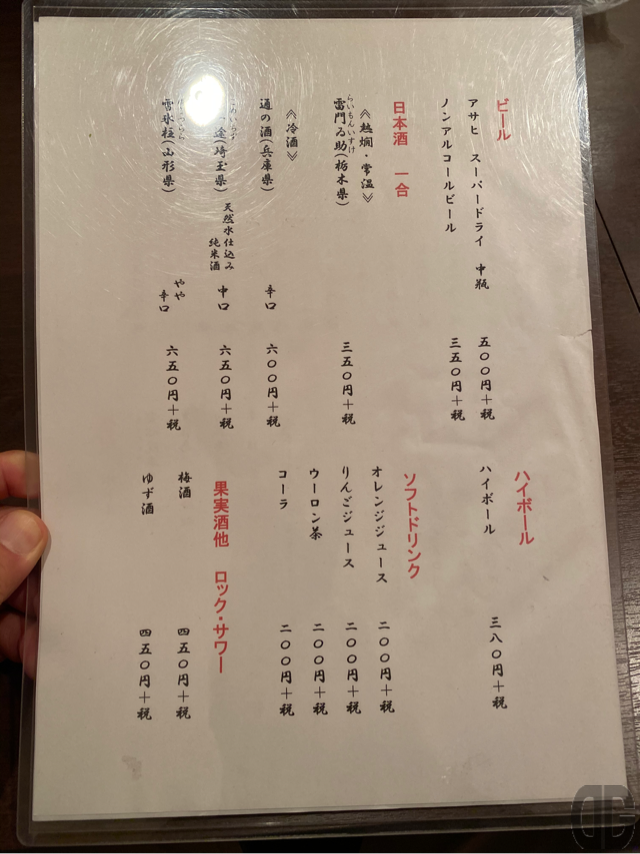 ビール
アサヒ スーパードライ 中瓶 五〇〇円＋税
ノンアルコールビール 三五〇円＋税
日本酒 一合
《熱燗・常温》
らいもんいすけ
雷門ゐ助(栃木県) 三五〇円＋税
《冷酒》
通の酒(兵庫県) 辛口 六〇〇円＋税
途(埼玉県) 天然水仕込み 純米酒 中口 六五〇円＋税
(山形県) やや 辛口 六五〇円＋税
ハイボール
ハイボール 三八〇円＋税
ソフトドリンク
オレンジジュース 二〇〇円＋税
りんごジュース 二〇〇円＋税
ウーロン茶 二〇〇円＋税
コーラ 二〇〇円＋税
果実酒他 ロック・サワー
梅酒 四五〇円＋税
ゆず酒 四五〇円＋税